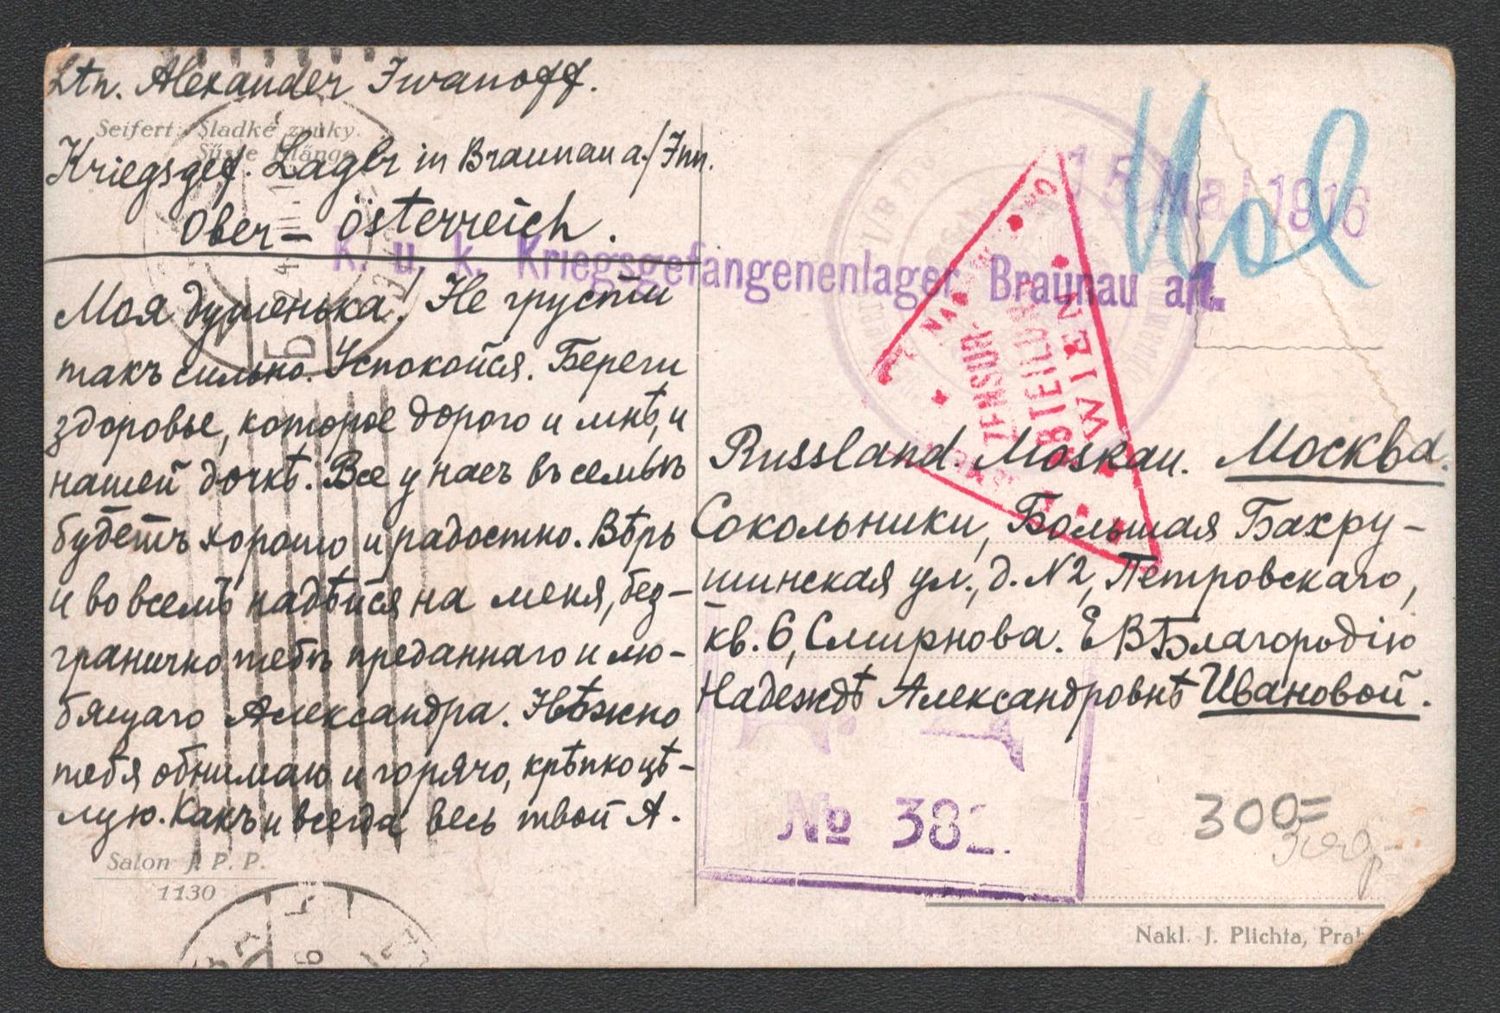 Ltn. Alexander Iwanoff.
Seifert: Sladké zvuky.
Süsse Klänge.
Kriegsgef. Lager in Braunau a./Inn.
Ober- Österreich.
15 Mai 1916
K. u. k. Kriegsgefangenenlager Braunau a/I.
ZENSUR-
ABTEILUNG
WIEN
Моя душенька! Не грусти
такъ сильно. Успокойся. Береги
здоровье, которое дорого и мнѣ, и
нашей дочкѣ. Все у насъ въ семьѣ
будетъ хорошо и радостно. Вѣрь
и во всемъ надѣйся на меня, без-
гранично тебѣ преданнаго и лю-
бящаго Александра. Нѣжно
тебя обнимаю и горячо, крѣпко цѣ-
лую. Какъ и всегда весь твой А.
Salon J. P. P.
1130
Russland. Moskau. Москва.
Сокольники, Большая Бахру-
шинская ул., д. N2, Петровскаго,
кв. 6, Смирнова. ЕВБлагородію
Надеждѣ Александровнѣ Ивановой.
№ 382.
300=
Nakl. J. Plichta,